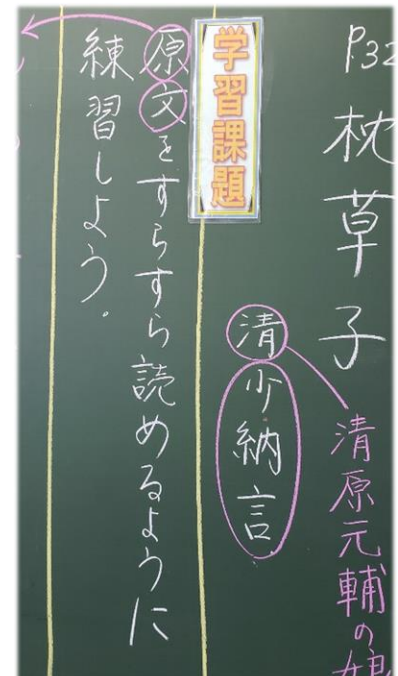 P.32
枕草子
清少納言
清原元輔の娘
学習課題
原文をすらすら読めるように
練習しよう。